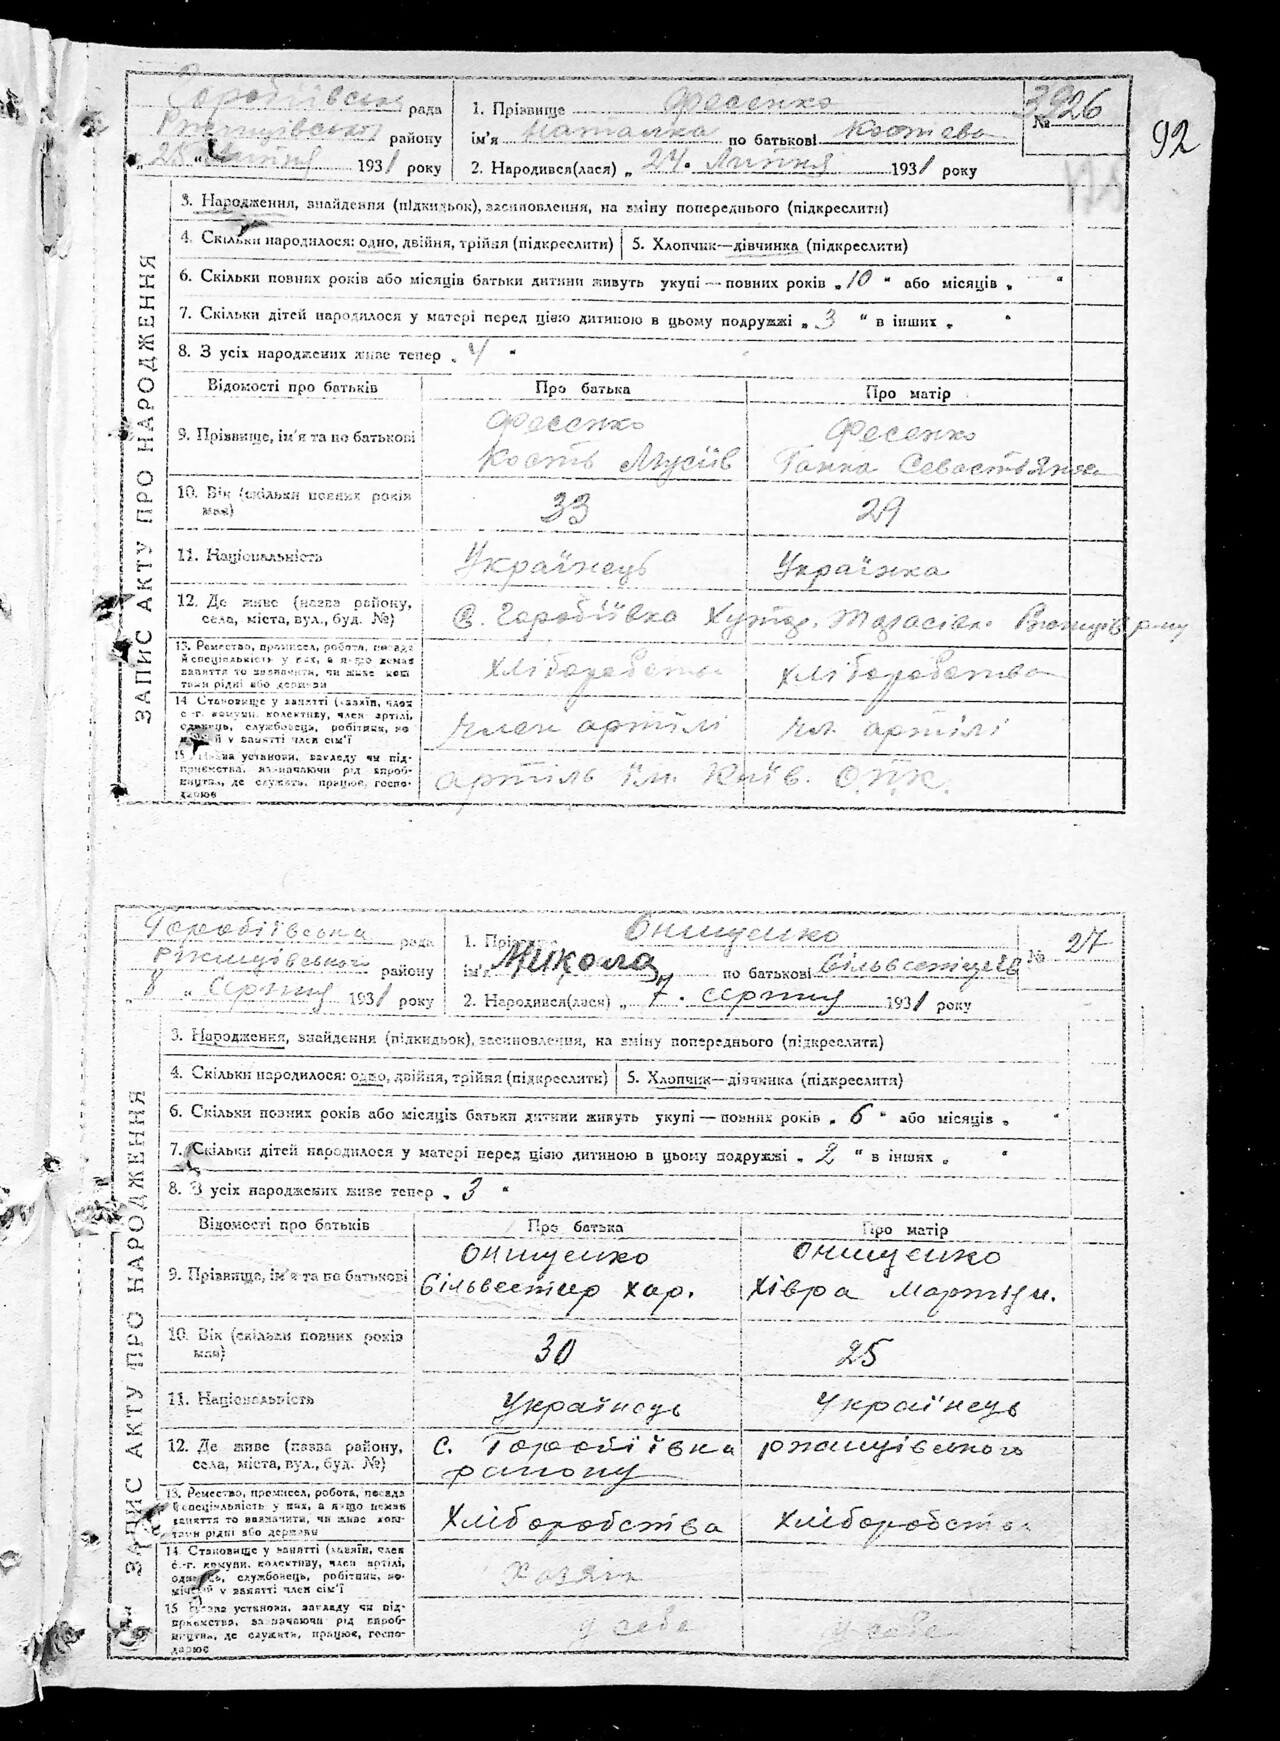 92
Горобіївська рада
Ржищівського району
„ 28 „ липня 1931 року
1. Прізвище Фесенко
ім'я Наталка по батькові Костєва
2. Народився(лася) „ 24. Липня 1931 року
№ 26
ЗАПИС АКТУ ПРО НАРОДЖЕННЯ
3. Народження, знайдення (підкидьок), засиновлення, на зміну попереднього (підкреслити)
4. Скільки народилося: одно, двійня, трійня (підкреслити)
5. Хлопчик—дівчинка (підкреслити)
6. Скільки повних років або місяців батьки дитини живуть укупі — повних років „ 10 " або місяців „ "
7. Скільки дітей народилося у матері перед цією дитиною в цьому подружжі „ 3 " в інших „ "
8. З усіх народжених живе тепер „ 4 "
Відомості про батьків Про батька Про матір
9. Прізвище, ім'я та по батькові
Фесенко Фесенко
Кость Мусіїв Ганна
10. Вік (скільки повних років має) 33 29
11. Національність Українець Українка
12. Де живе (назва району, села, міста, вул., буд. №)
с. Горобіївка Хутор. Тарасівка
13. Ремество, промисел, робота, посада й спеціяльність у них, а якщо немає заняття то зазначити, чи живе коштами рідні або держави
Хліборобство хліборобство
14 Становище у занятті (хазяїн, член с.-г. комуни, колективу, член артілі, одинець, службовець, робітник, помічний у занятті член сім'ї
член артілі чл. артілі
15 Назва установи, закладу чи підприємства, зазначаючи рід виробництва, де служить, працює, господарює
артіль ім. Київ. О.П.К.
Горобіївська рада
Ржищівського району
„ 8 „ серпня 1931 року
1. Прізвище Онищенко
ім'я Микола по батькові Сільвестрів
2. Народився(лася) „ 7. серпня 1931 року
№ 27
ЗАПИС АКТУ ПРО НАРОДЖЕННЯ
3. Народження, знайдення (підкидьок), засиновлення, на зміну попереднього (підкреслити)
4. Скільки народилося: одно, двійня, трійня (підкреслити)
5. Хлопчик—дівчинка (підкреслити)
6. Скільки повних років або місяців батьки дитини живуть укупі — повних років „ 6 " або місяців „ "
7. Скільки дітей народилося у матері перед цією дитиною в цьому подружжі „ 2 " в інших „ "
8. З усіх народжених живе тепер „ 3 "
Відомості про батьків Про батька Про матір
9. Прізвище, ім'я та по батькові
Онищенко Онищенко
Сільвестер Хар. Хівра Мартин.
10. Вік (скільки повних років має) 30 25
11. Національність Українець Українець
12. Де живе (назва району, села, міста, вул., буд. №)
с. Горобіївка ржищівського
району
13. Ремество, промисел, робота, посада й спеціяльність у них, а якщо немає заняття то зазначити, чи живе коштами рідні або держави
Хліборобства Хліборобства
14. Становище у занятті (хазяїн, член с.-г. комуни, колективу, член артілі, одинець, службовець, робітник, помічний у занятті член сім'ї
Хазяїн
15 Назва установи, закладу чи підприємства, зазначаючи рід виробництва, де служить, працює, господарює
у себе у себе